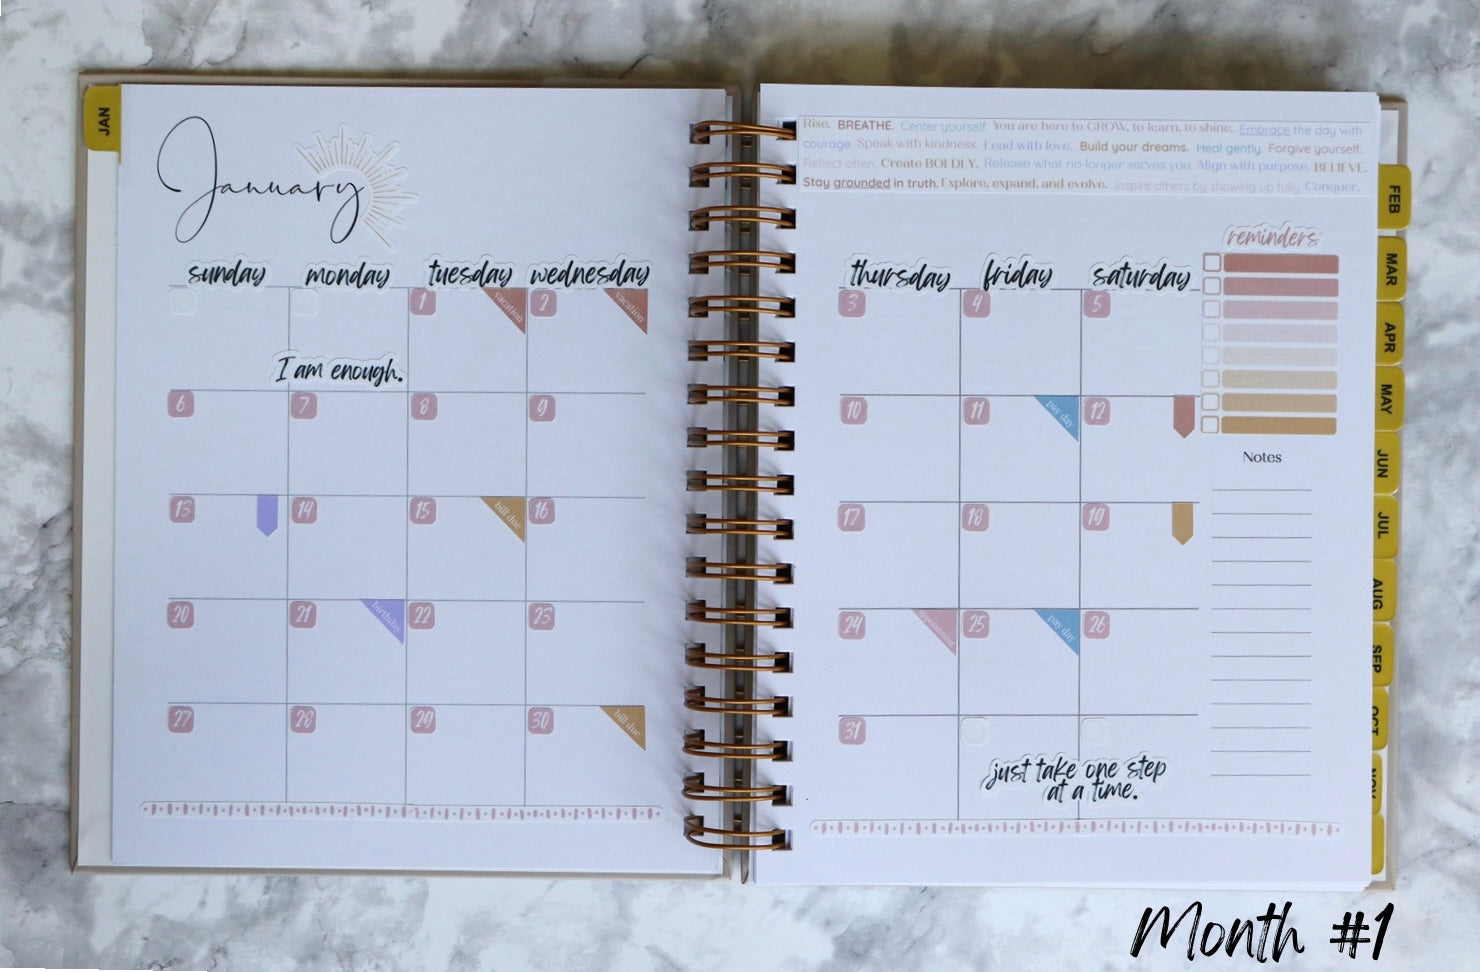 JAN
January
Rise. BREATHE. Center yourself. You are here to GROW, to learn, to shine. Embrace the day with
courage. Speak with kindness. Lead with love. Build your dreams. Heal gently Forgive yourself.
Reflect often. Create BOLDLY. Release what no longer serves you. Align with purpose. BELIEVE.
Stay grounded in truth. Explore, expand, and evolve. Inspire others by showing up fully. Conquer.
sunday monday tuesday wednesday
1 vacation 2 vacation
I am enough.
6 7 8 9
13 14 15 bill due 16
20 21 birthday 22 23
27 28 29 30 bill due
thursday friday saturday
3 4 5
10 11 pay day 12
17 18 19
24 appointment 25 pay day 26
31
just take one step
at a time.
reminders
Notes
FEB
MAR
APR
MAY
JUN
JUL
AUG
SEP
OCT
NOV
Month #1